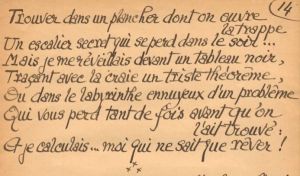 14
Trouver dans un plancher dont on ouvre
la trappe
Un escalier secret qui se perd dans le soir...
Mais je me réveillais devant un tableau noir,
Traçant avec la craie un triste théorème,
Ou dans le labyrinthe ennuyeux d'un problème
Qui vous perd tant de fois avant qu'on
l'ait trouvé:
Et je calculais... moi qui ne sait que rêver!